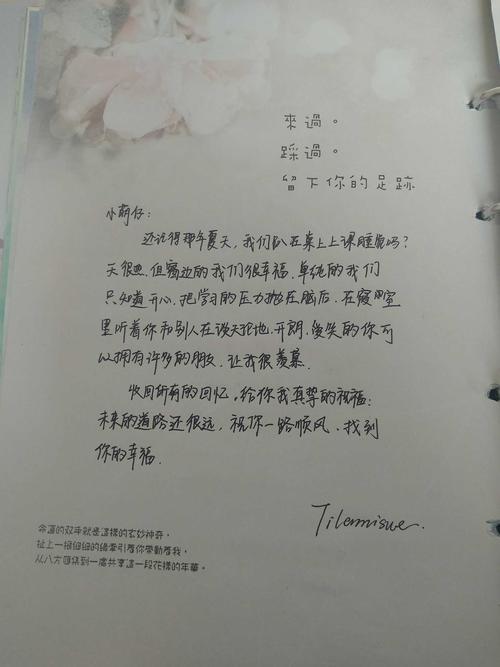 來過。
踩過。
留下你的足跡
小萌仔：
还记得那年夏天，我们趴在桌上上课睡觉吗？
天很热，但窗边的我们很幸福，单纯的我们
只知道开心，把学习的压力抛在脑后，在寝室
里听着你和别人在谈天论地，开朗、爱笑的你可
以拥有许多的朋友，让我很羡慕。
收回所有的回忆，给你我真挚的祝福：
未来的道路还很远，祝你一路顺风，找到
你的幸福.
命運的双手就是這樣的玄妙神奇，
扯上一根細細的線牽引着你帶動着我，
从八方匯集到一處共享這一段花樣的年華。